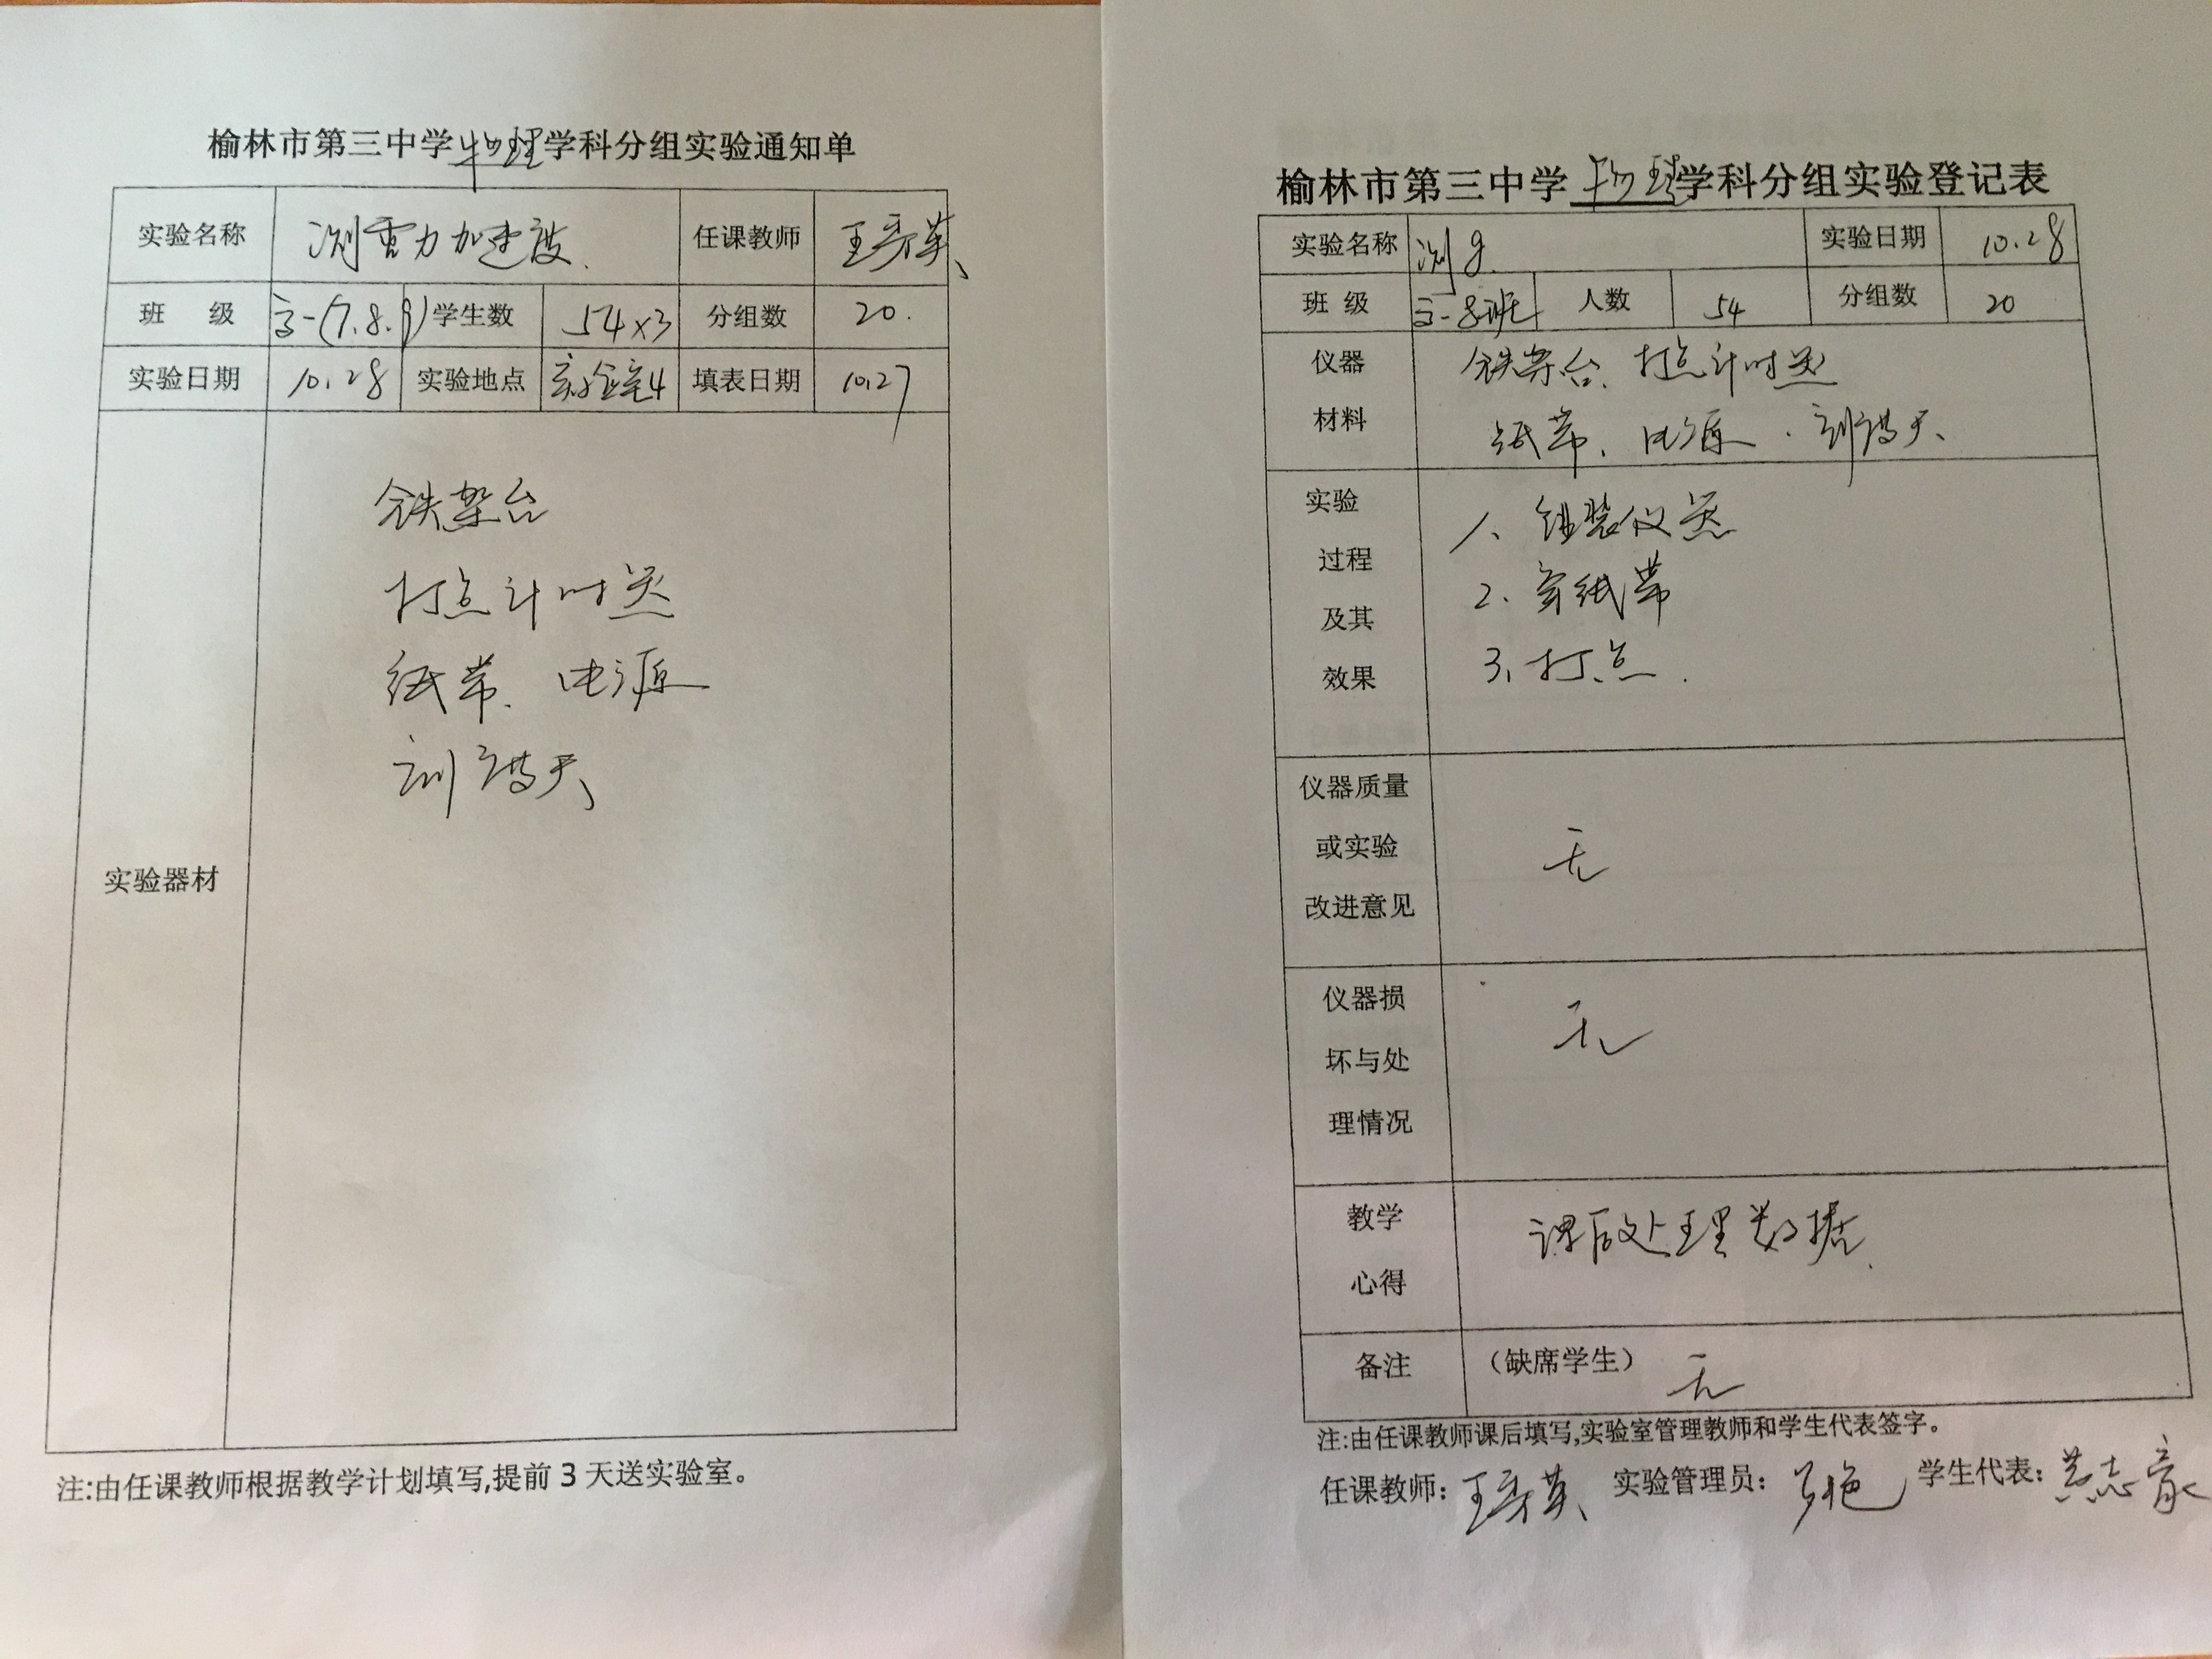 榆林市第三中学物理学科分组实验通知单
实验名称 测重力加速度 任课教师 王秀英
班 级 高一(7.8.9) 学生数 54×3 分组数 20.
实验日期 10.28 实验地点 实验室4 填表日期 10.27
铁架台
打点计时器
纸带、电源
刻度尺
实验器材
注:由任课教师根据教学计划填写,提前3天送实验室。
榆林市第三中学物理学科分组实验登记表
实验名称 测g. 实验日期 10.28
班 级 高一8班 人数 54 分组数 20
仪器 铁架台、打点计时器
材料 纸带、电源、刻度尺、
实验 1、组装仪器
过程 2、穿纸带
及其
效果 3、打点.
仪器质量
或实验 无
改进意见
仪器损 无
坏与处
理情况
教学 课后处理数据.
心得
备注 (缺席学生) 无
注:由任课教师课后填写,实验室管理教师和学生代表签字。
任课教师: 王秀英 实验管理员: 学生代表: 黄志豪